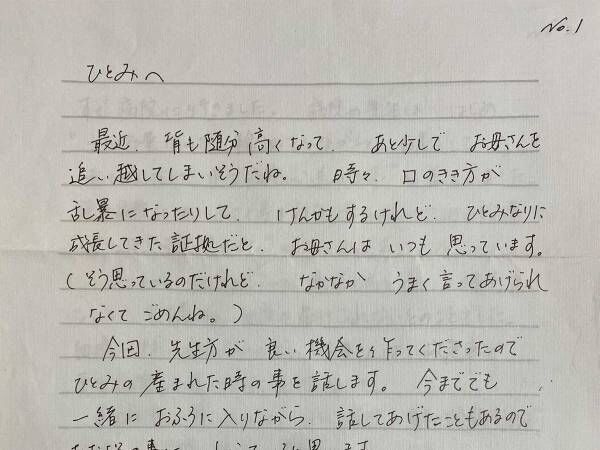 No.1
ひとみへ
最近、背も随分高くなって、あと少しでお母さんを
追い越してしまいそうだね。時々、口のきき方が
乱暴になったりして、けんかもするけれど、ひとみなりに
成長してきた証拠だと、お母さんはいつも思っています。
(そう思っているのだけれど、なかなかうまく言ってあげられ
なくてごめんね。)
今回、先生方が良い機会を作ってくださったので
ひとみの産まれた時の事を話します。今まででも
一緒におふろに入りながら、話してあげたこともあるので